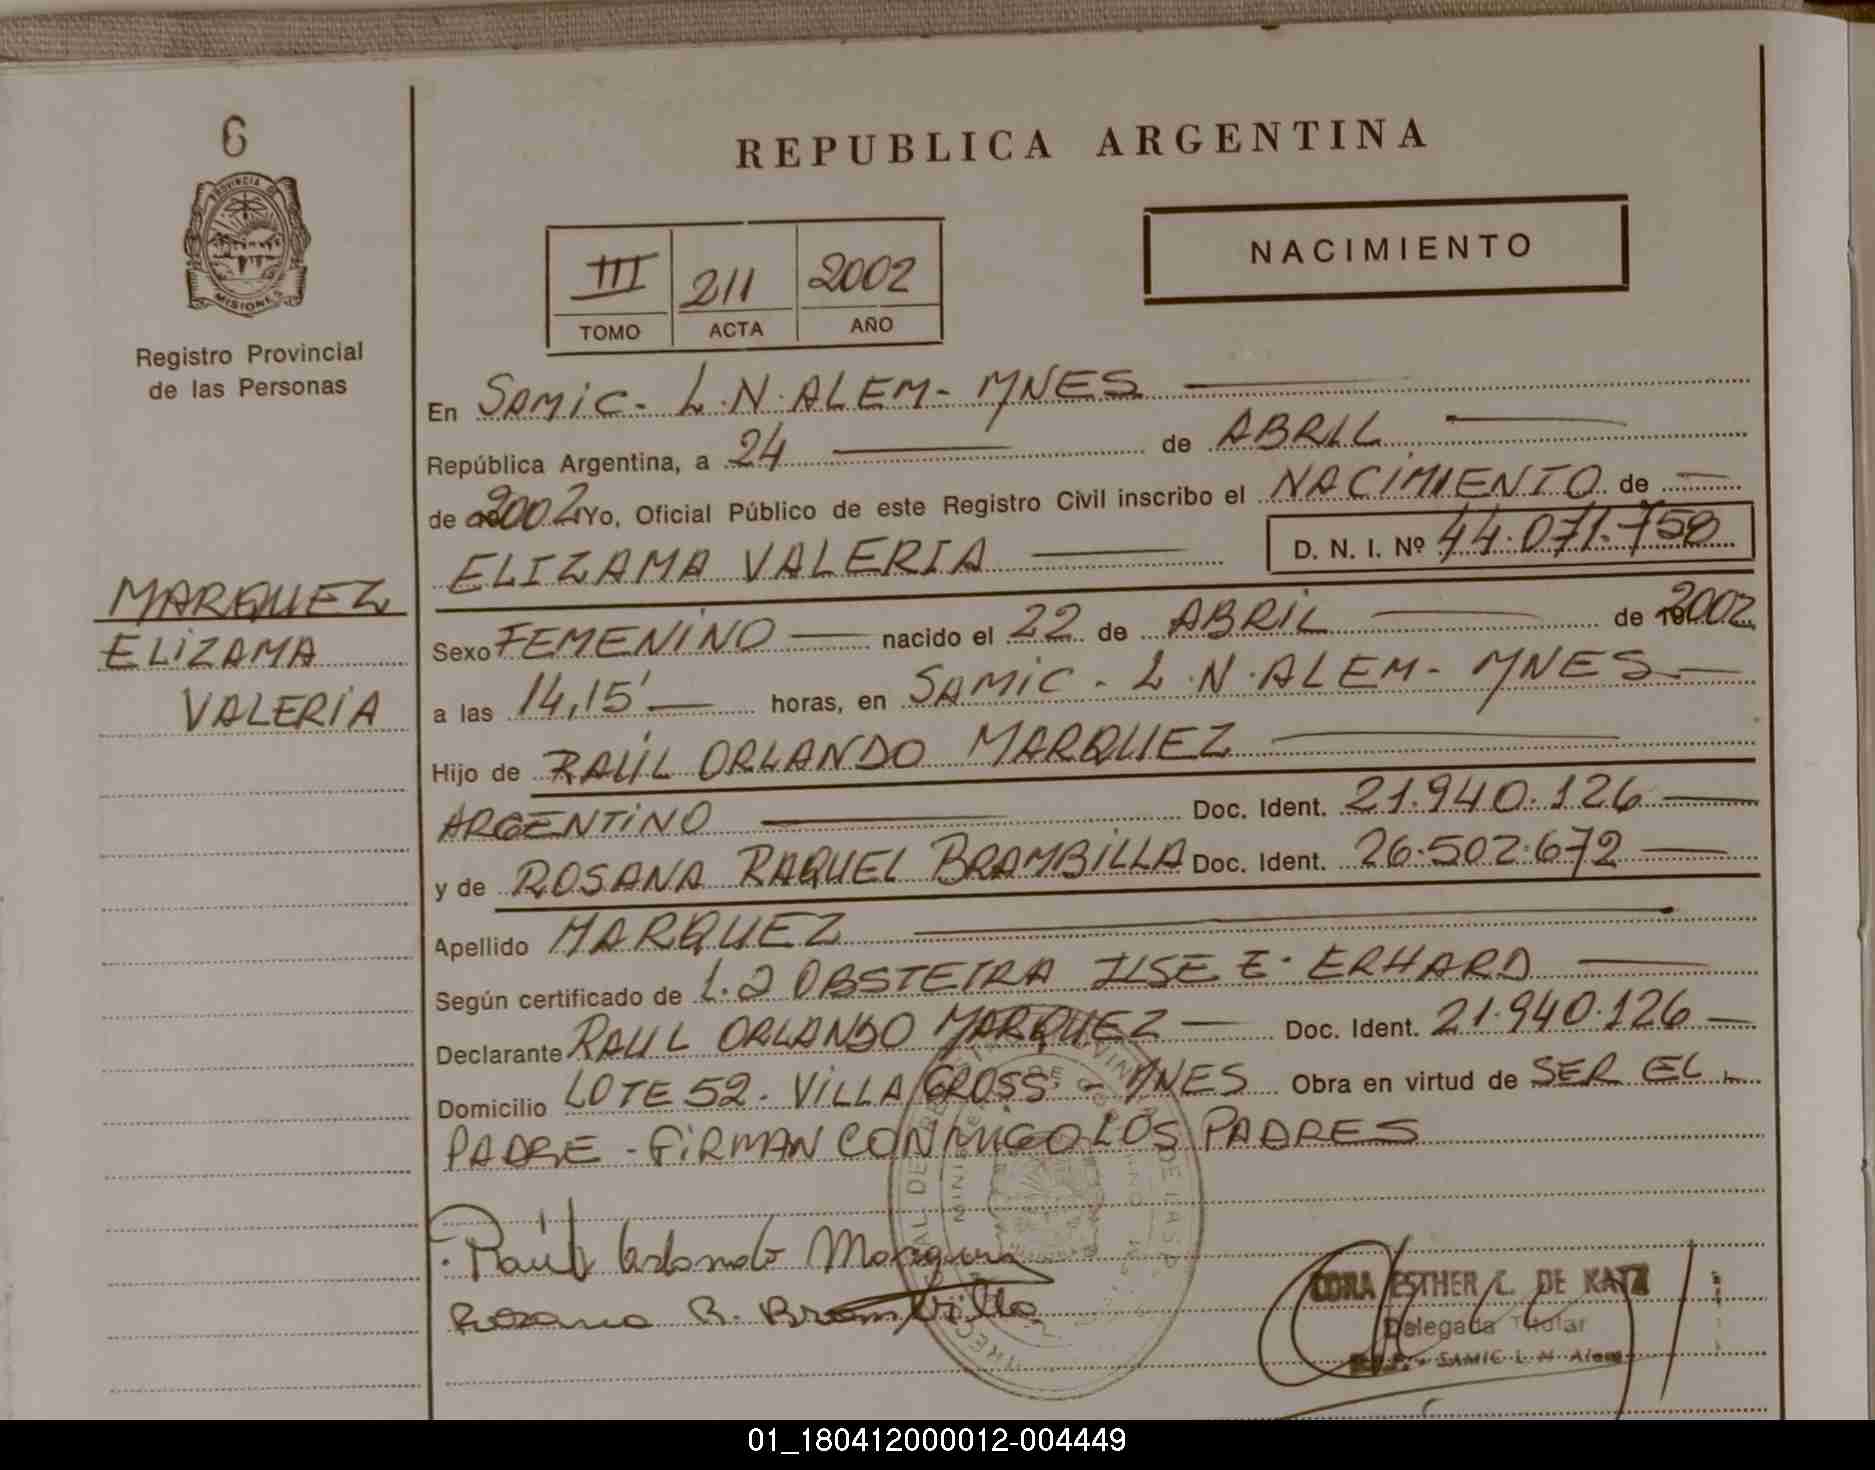 6
PROVINCIA DE
MISIONES
Registro Provincial
de las Personas
MARQUEZ
ELIZAMA
VALERIA
REPUBLICA ARGENTINA
III 211 2002
TOMO ACTA AÑO
NACIMIENTO
En SAMIC - L.N. ALEM - MNES
República Argentina, a 24 de ABRIL
de 2002 Yo, Oficial Público de este Registro Civil inscribo el NACIMIENTO de
ELIZAMA VALERIA D. N. I. Nº 44.071.758
Sexo FEMENINO nacido el 22 de ABRIL de 2002
a las 14,15' horas, en SAMIC - L.N. ALEM - MNES
Hijo de RAÚL ORLANDO MARQUEZ
ARGENTINO Doc. Ident. 21.940.126
y de ROSANA RAQUEL BRAMBILLA Doc. Ident. 26.502.672
Apellido MARQUEZ
Según certificado de L.a OBSTETRA ILSE E. ERHARD
Declarante RAUL ORLANDO MARQUEZ Doc. Ident. 21.940.126
Domicilio LOTE 52. VILLA GROSS - MNES Obra en virtud de SER EL
PADRE - FIRMAN CONMIGO LOS PADRES
Raúl Orlando Marquez
Rosana R. Brambilla
CORA ESTHER L. DE KATZ
Delegada Titular
SAMIC L N Alem
01_180412000012-004449